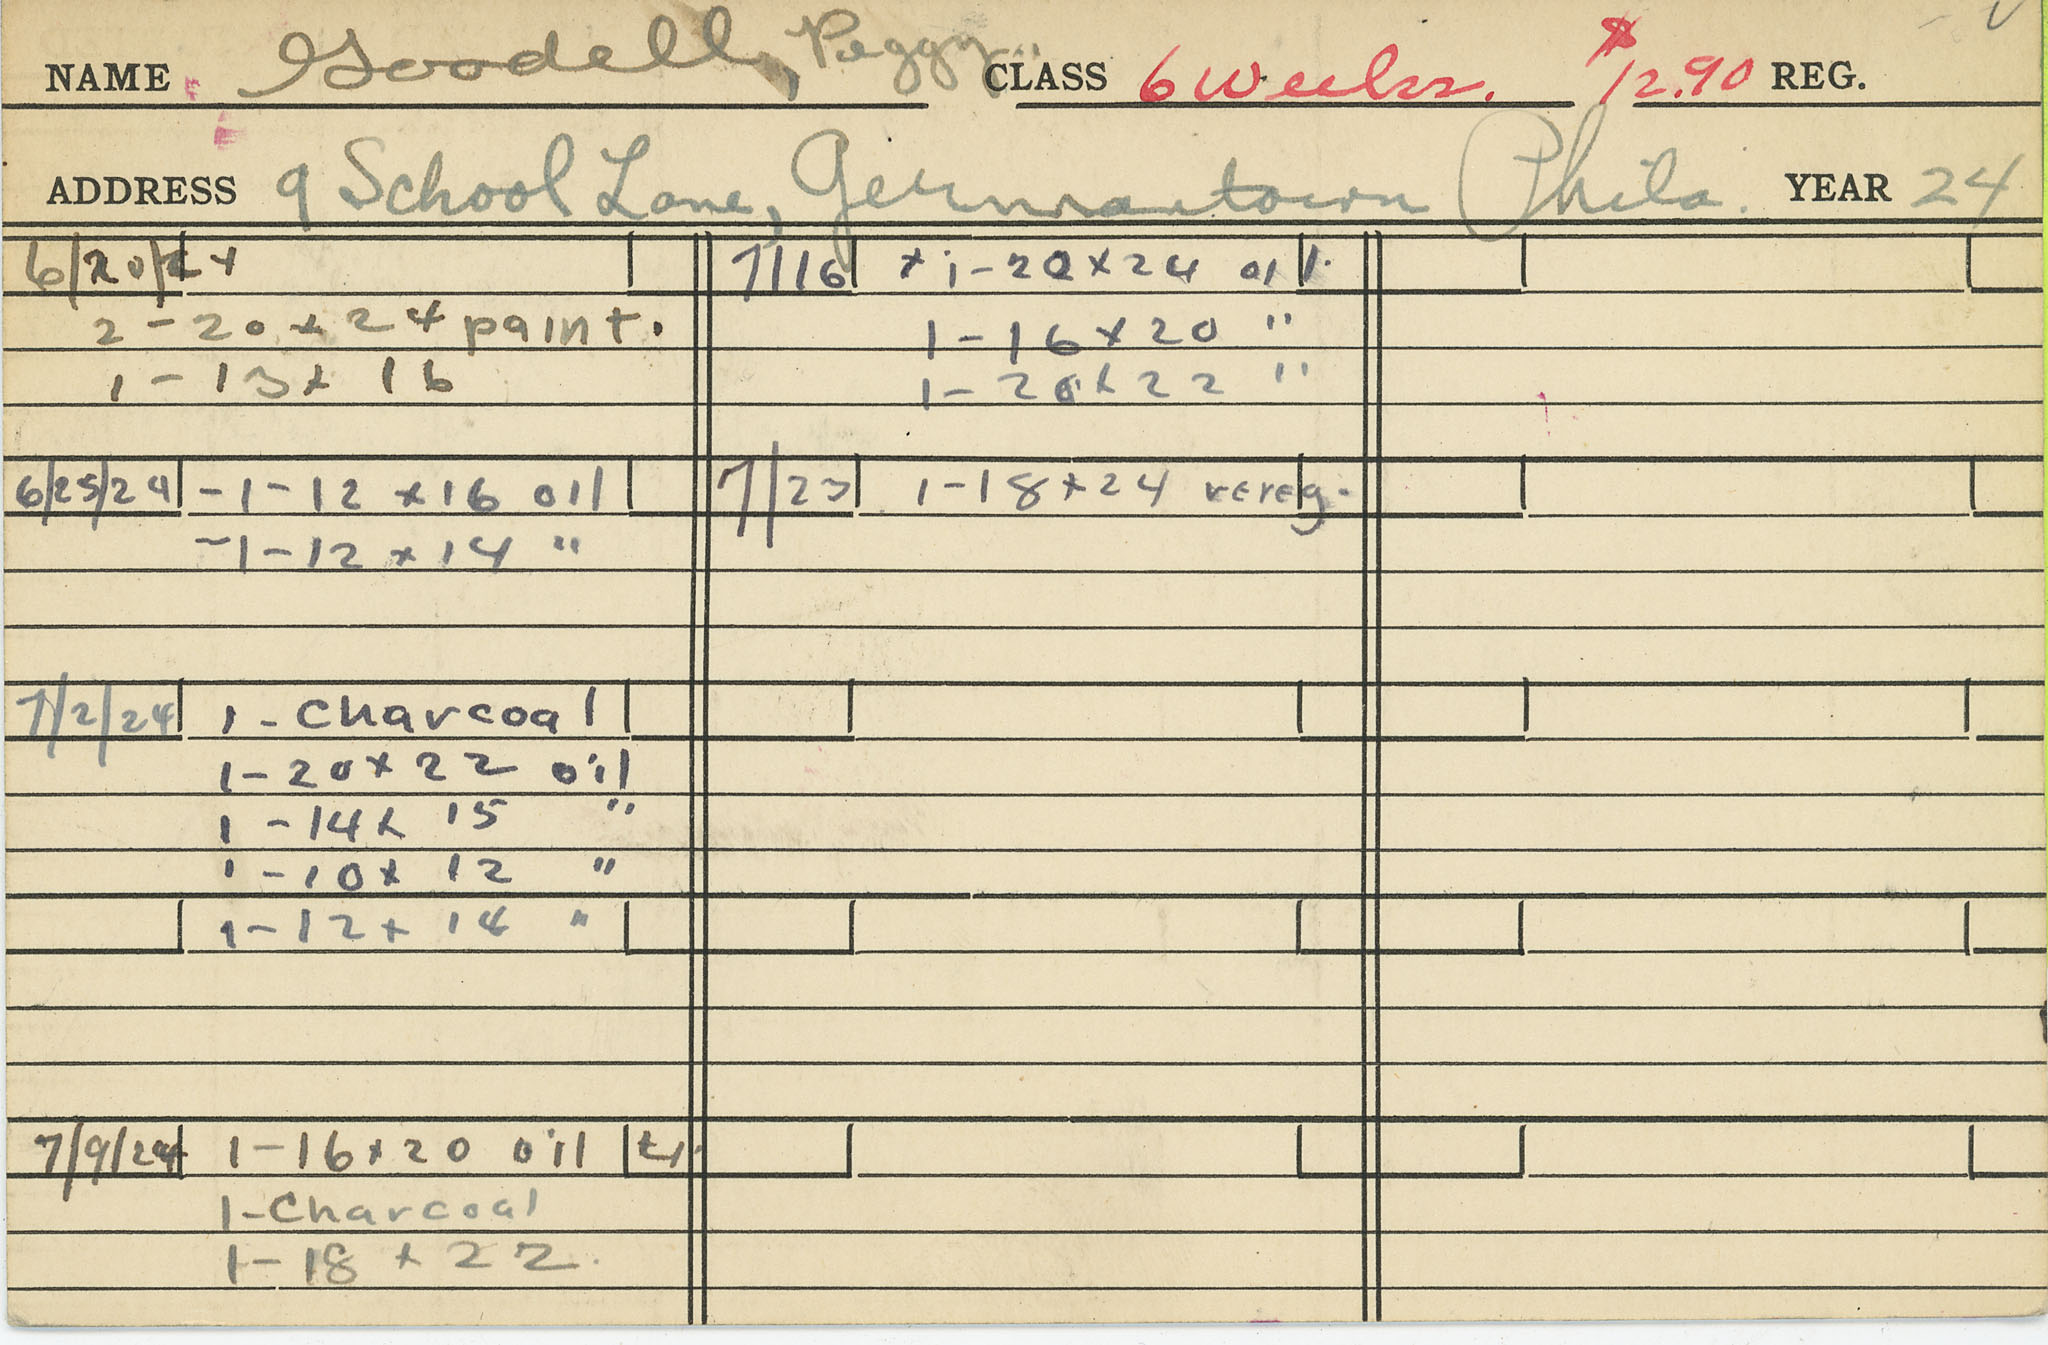 NAME Goodell, Peggy CLASS 6 Weeks. $12.90 REG.
ADDRESS 9 School Lane, Germantown Phila. YEAR 24
6/20/24
2-20x24 paint.
1-13x16
6/25/24 -1-12x16 oil
-1-12x14 "
7/2/24 1-Charcoal
1-20x22 oil
1-14x15 "
1-10x12 "
1-12x14 "
7/9/24 1-16x20 oil
1-Charcoal
1-18x22.
7/16 x 1-20x24 oil.
1-16x20 "
1-20x22 "
7/23 1-18x24 rereg.